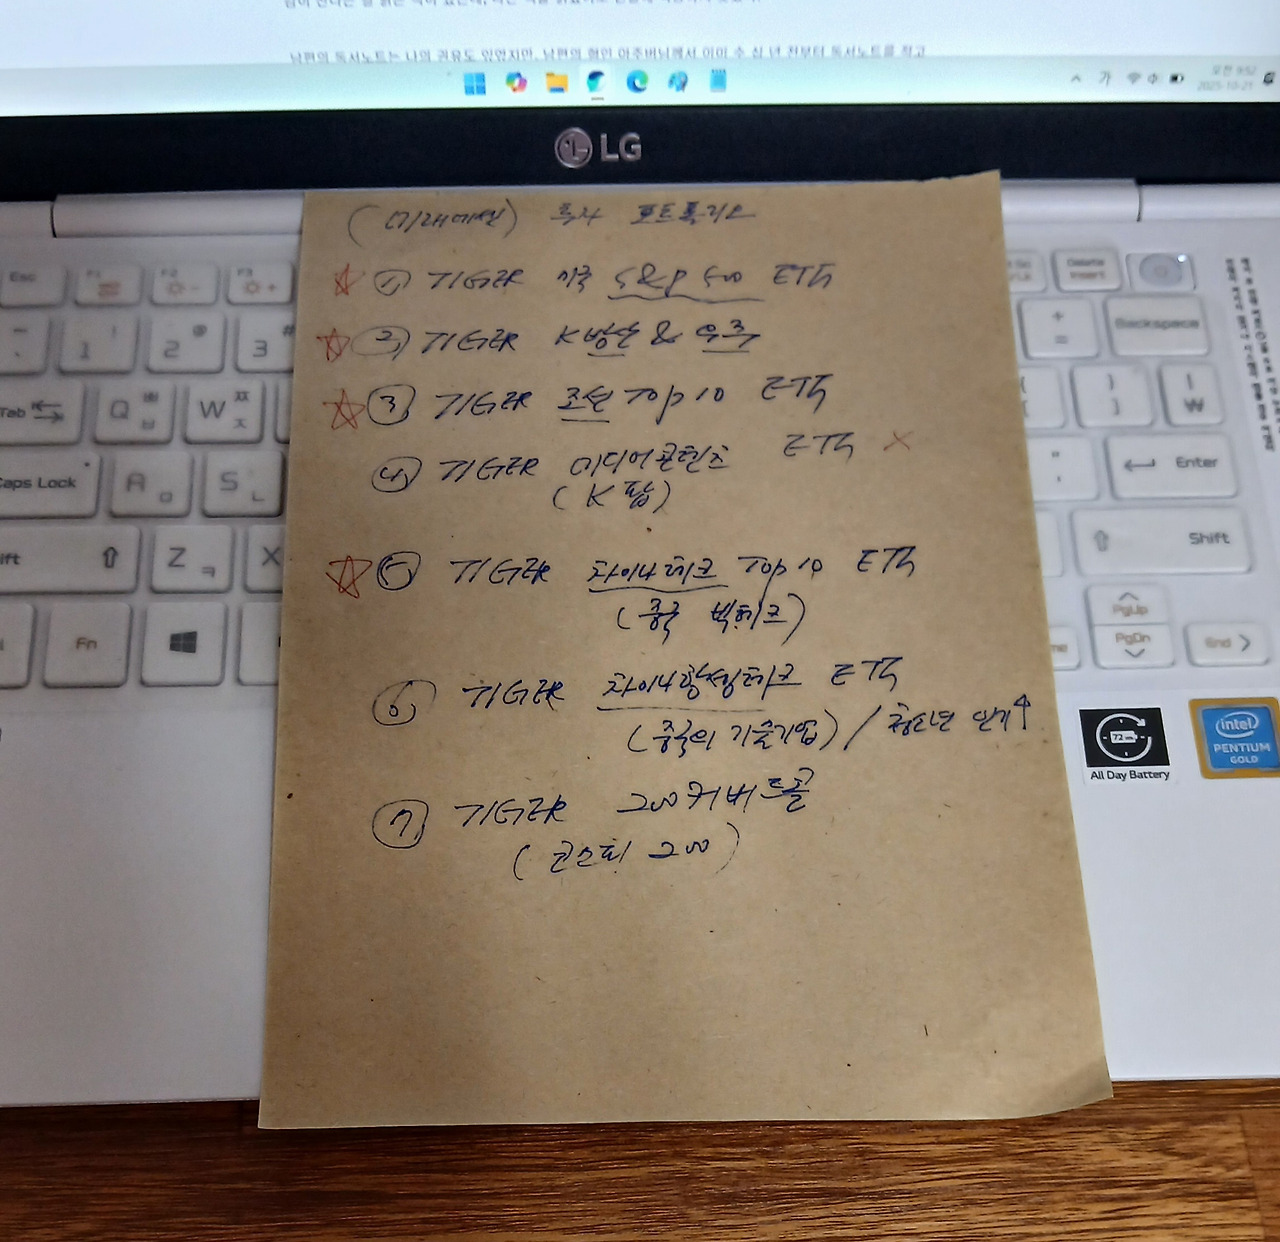 남편의 독서노트는 나의 권유도 있었지만, 남편의 형인 아주버님께서 이미 수 십 년 전부터 독서노트를 적고
가
오전 9:52
2025-10-21
LG
(미래에셋) 투자 포트폴리오
① TIGER 미국 S&P 500 ETF
② TIGER K방산 & 우주
③ TIGER 조선 Top 10 ETF
④ TIGER 미디어콘텐츠 ETF ×
(K팝)
⑤ TIGER 차이나테크 Top 10 ETF
(중국 빅테크)
⑥ TIGER 차이나항셍테크 ETF
(중국의 기술기업) / 인기↑
⑦ TIGER 200커버드콜
(코스피 200)
Esc F1 F2 F3 Delete Insert
1 2 3 # + = Backspace
Tab Q ㅂ ㅃ W ㅈ ㅉ { [ } ] | ₩
Caps Lock A ㅁ S ㄴ " ' Enter
Z ㅋ X Shift
Fn PgUp PgDn End
72
All Day Battery
intel
PENTIUM
GOLD